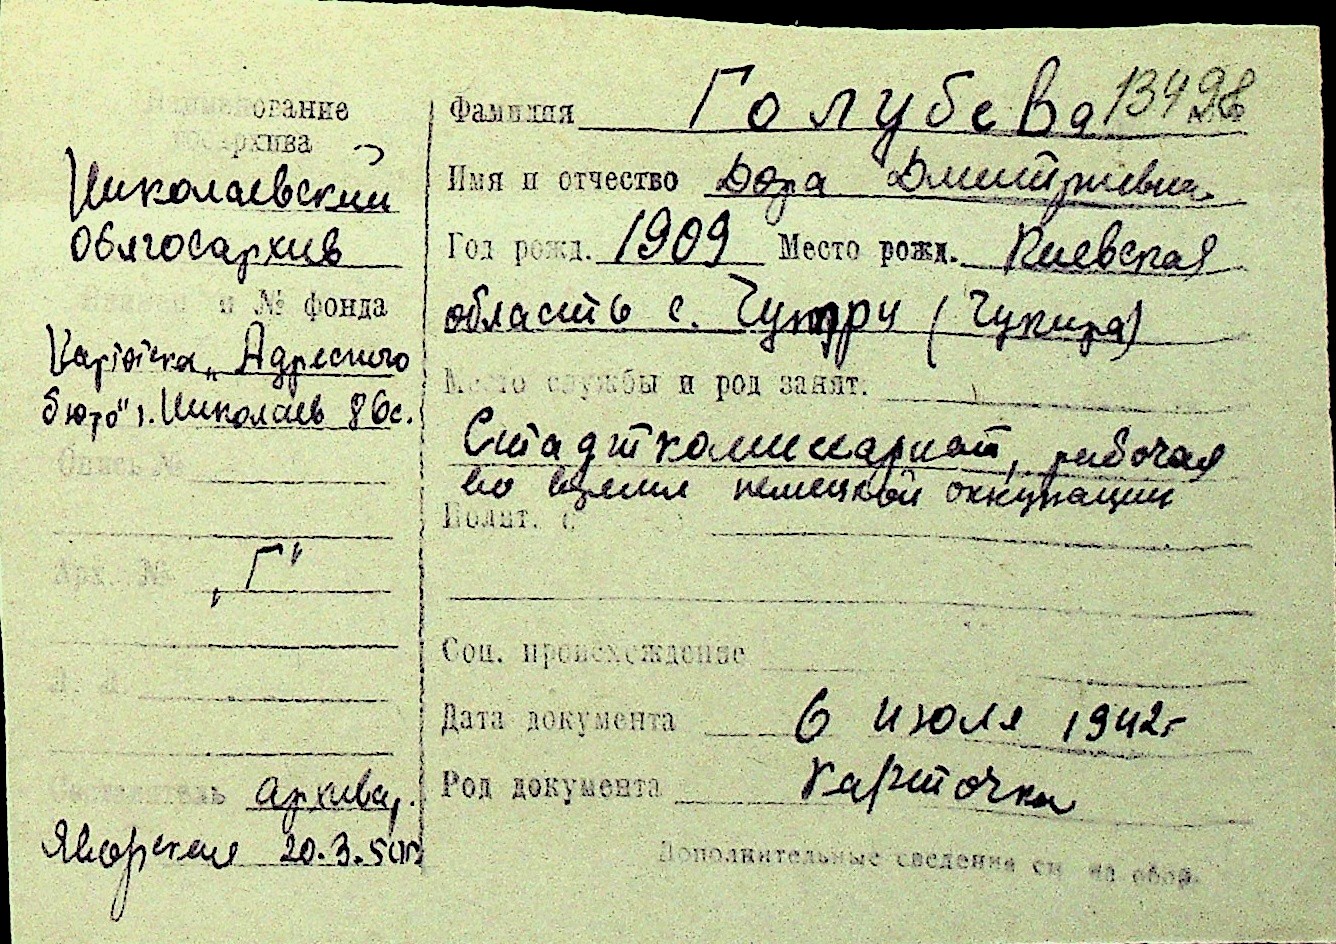 Наименование
госархива
Николаевский
облгосархив
и № фонда
Картотека „Адресного
бюро" г. Николаев 86с.
Опись №
Арх. №
„Г"
Составитель архивар.
Яворская 20.3.50г.
Фамилия Голубева 13498
Имя и отчество Дора Дмитриевна
Год рожд. 1909 Место рожд. Киевская
область с. (Чупира)
Место службы и род занят.
Стадткомиссариат, рабочая
во время немецкой оккупации
Полит. с
Соц. происхождение
Дата документа 6 июля 1942г
Род документа карточка
Дополнительные сведения см на обор.